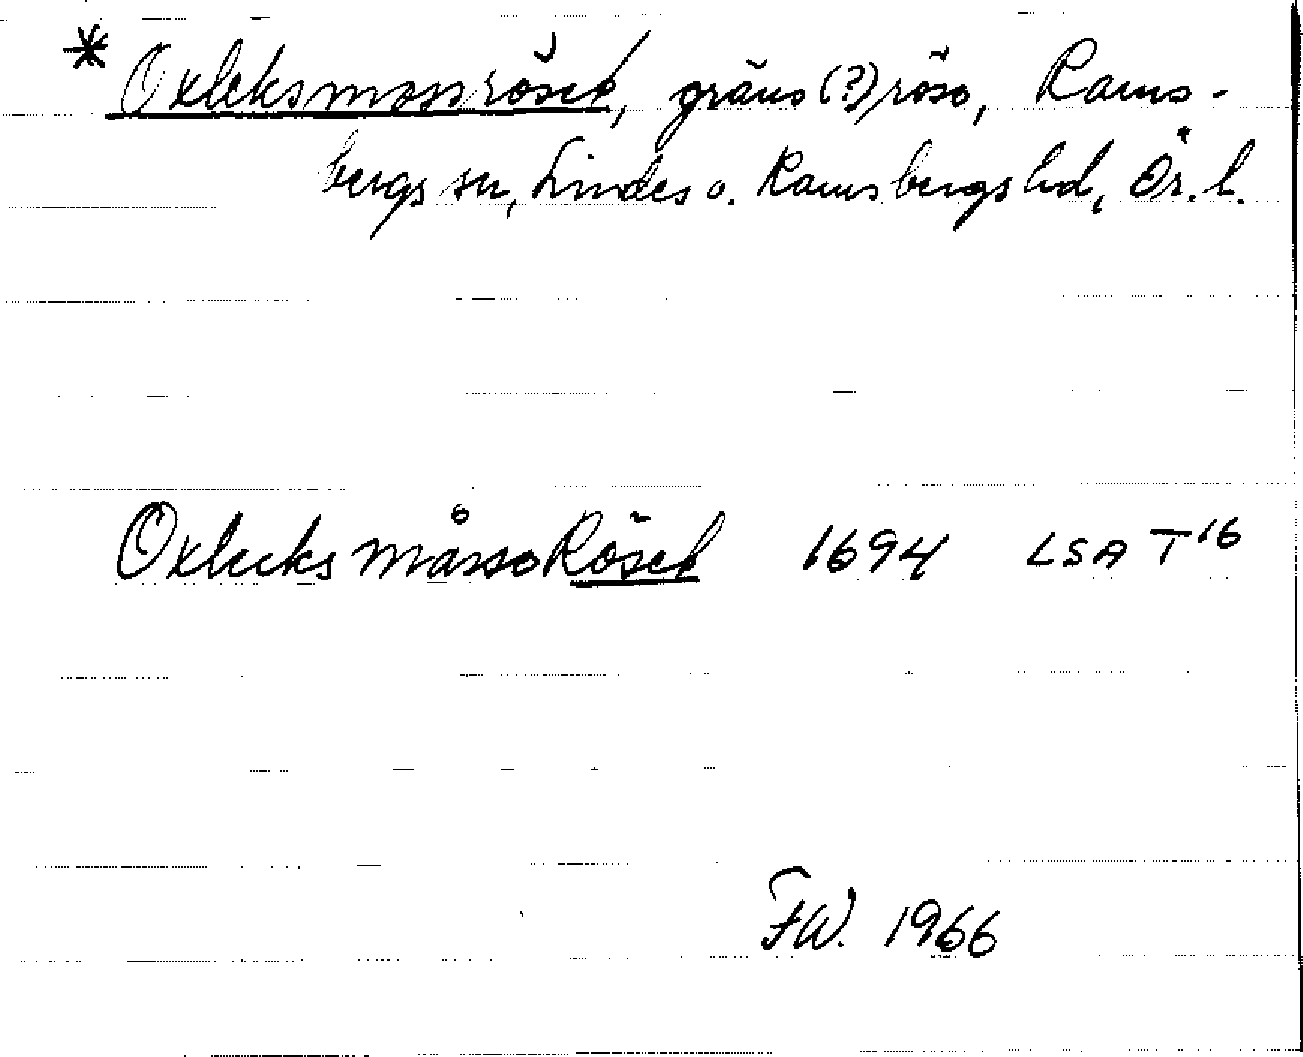 * Oxleksmossröset, gräns(?)röse, Rams-
bergs sn, Lindes o. Ramsbergs hd, Ör. l.
Oxleeks måsse Röset 1694 LSA T 16
F.W. 1966